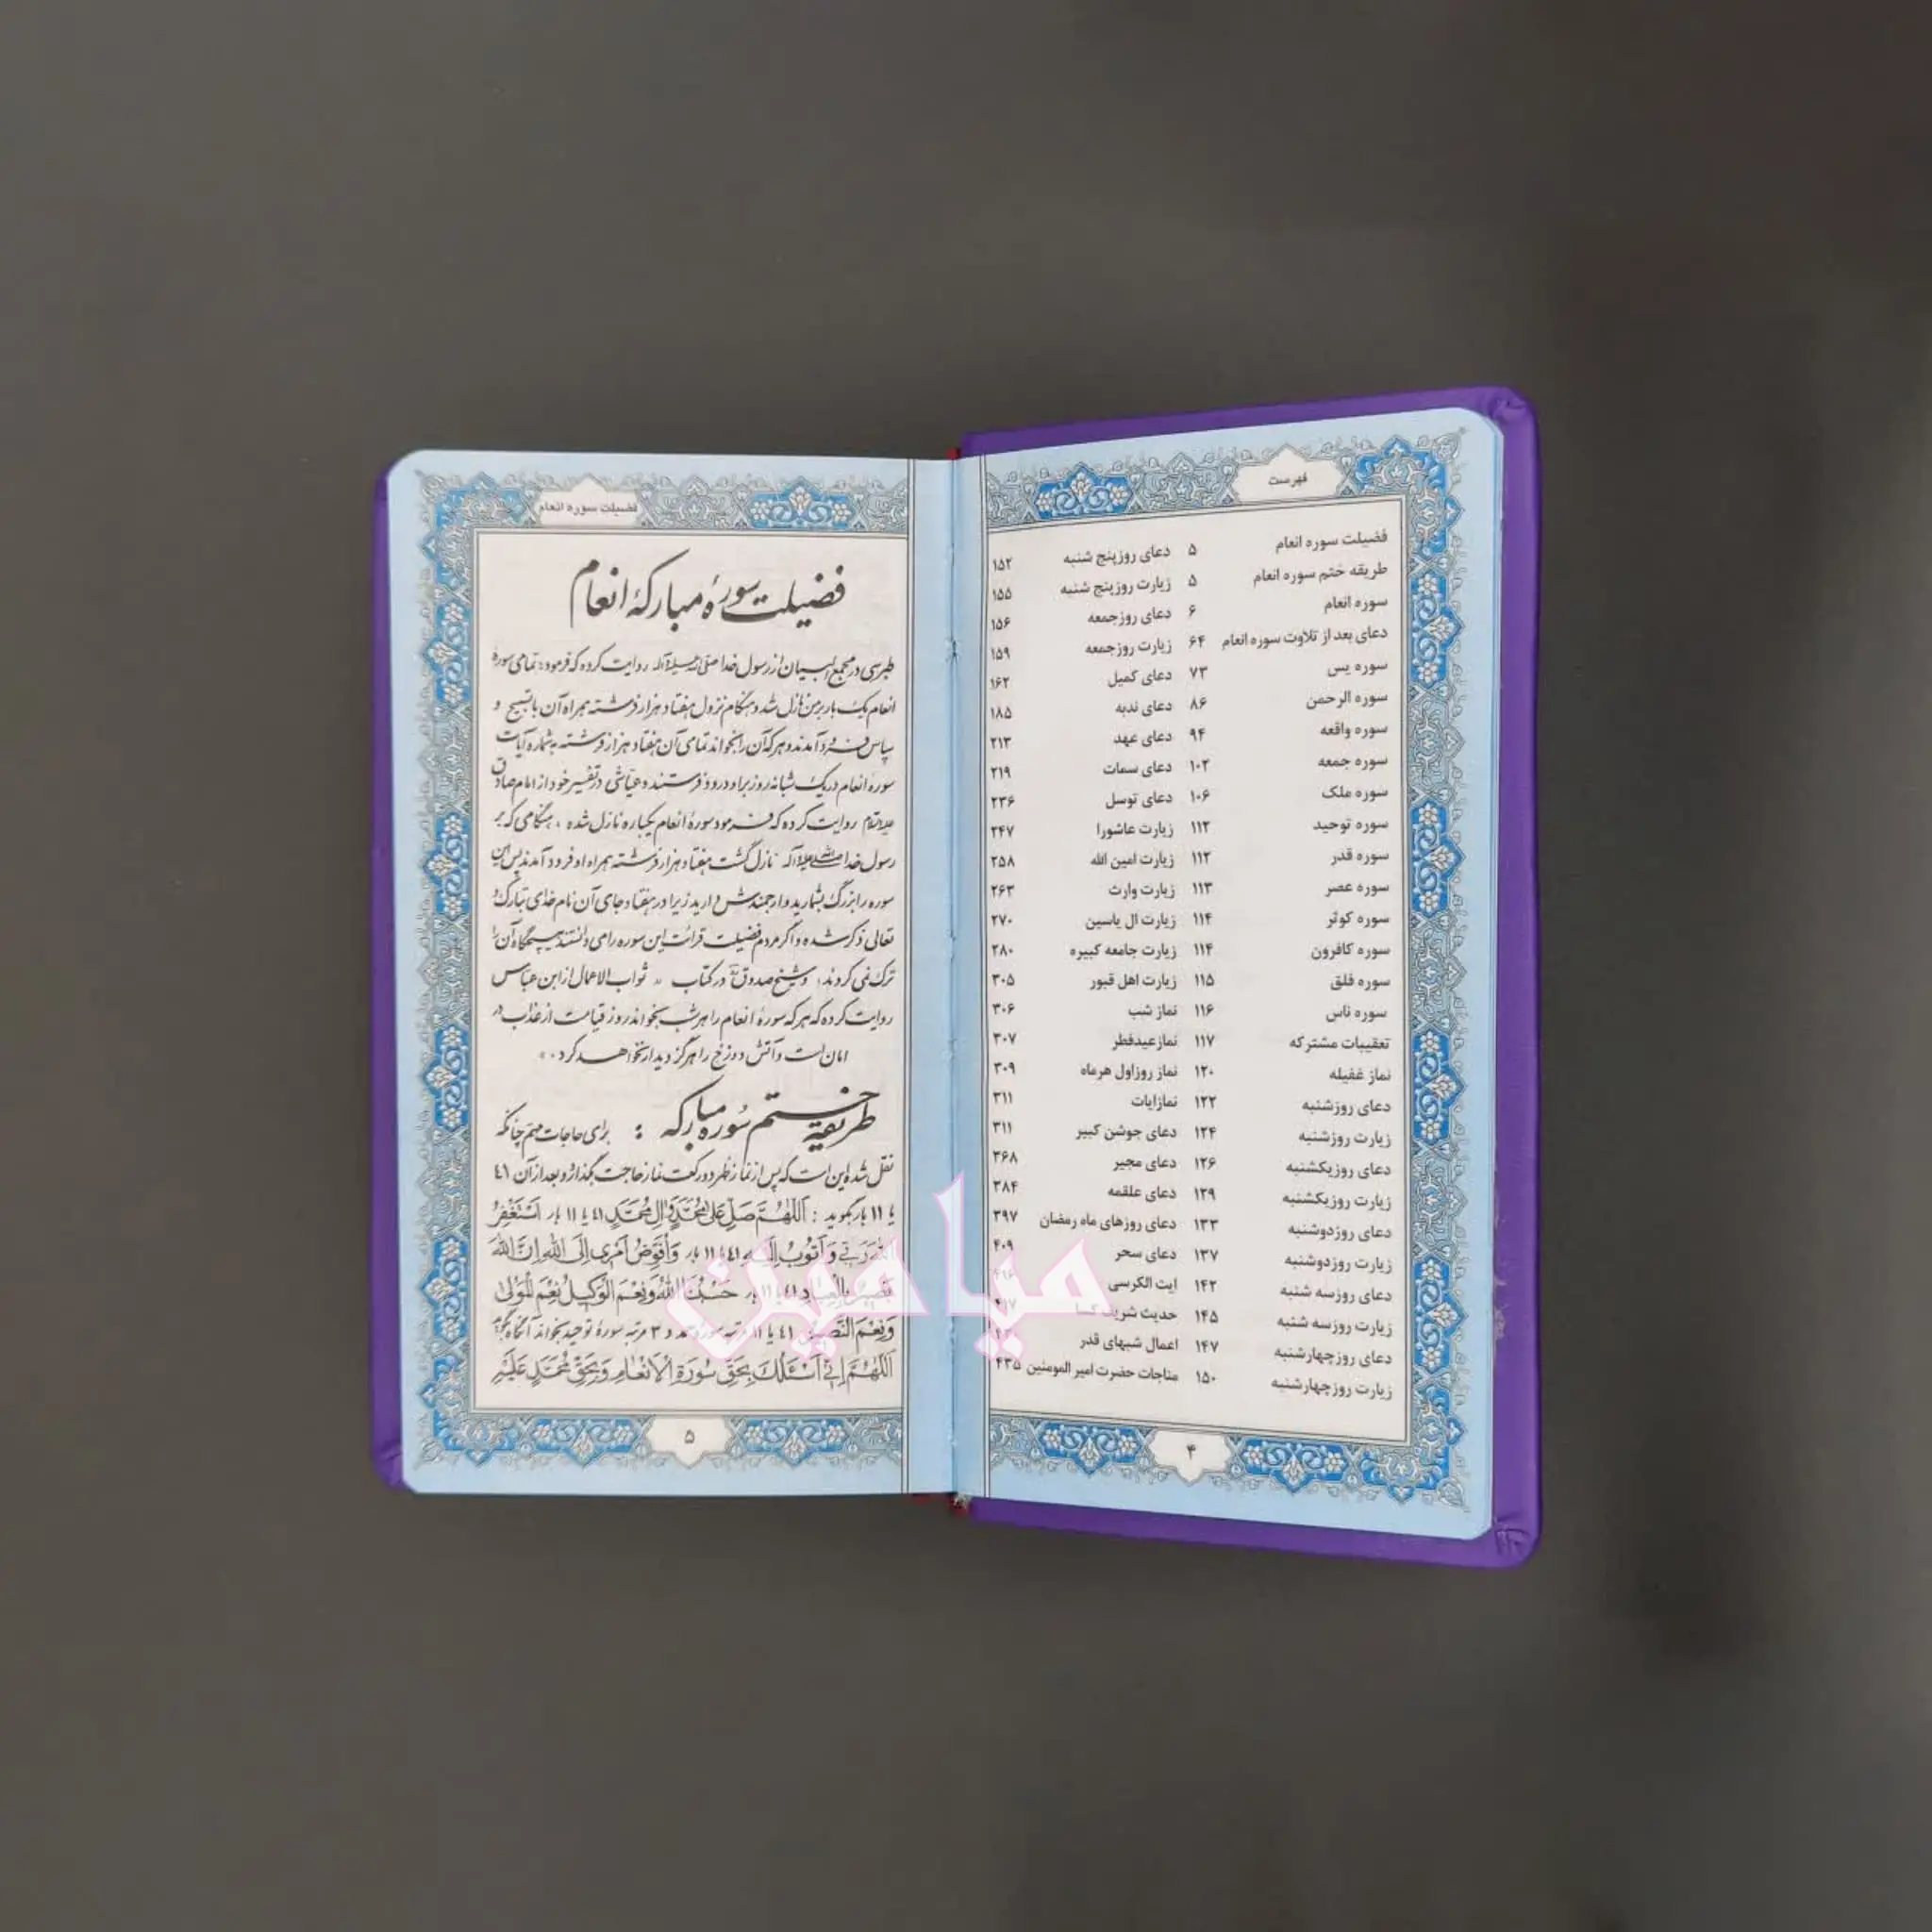 فهرست
فضیلت سوره انعام ۵
طریقه ختم سوره انعام ۵
سوره انعام ۶
دعای بعد از تلاوت سوره انعام ۶۴
سوره یس ۷۳
سوره الرحمن ۸۶
سوره واقعه ۹۴
سوره جمعه ۱۰۲
سوره ملک ۱۰۶
سوره توحید ۱۱۲
سوره قدر ۱۱۲
سوره عصر ۱۱۳
سوره کوثر ۱۱۴
سوره کافرون ۱۱۴
سوره فلق ۱۱۵
سوره ناس ۱۱۶
تعقیبات مشترکه ۱۱۷
نماز غفیله ۱۲۰
دعای روزشنبه ۱۲۲
زیارت روزشنبه ۱۲۴
دعای روزیکشنبه ۱۲۶
زیارت روزیکشنبه ۱۲۹
دعای روزدوشنبه ۱۳۳
زیارت روزدوشنبه ۱۳۷
دعای روزسه شنبه ۱۴۲
زیارت روزسه شنبه ۱۴۵
دعای روزچهارشنبه ۱۴۷
زیارت روزچهارشنبه ۱۵۰
دعای روزپنج شنبه ۱۵۲
زیارت روزپنج شنبه ۱۵۵
دعای روزجمعه ۱۵۶
زیارت روزجمعه ۱۵۹
دعای کمیل ۱۶۲
دعای ندبه ۱۸۵
دعای عهد ۲۱۳
دعای سمات ۲۱۹
دعای توسل ۲۳۶
زیارت عاشورا ۲۴۷
زیارت امین الله ۲۵۸
زیارت وارث ۲۶۳
زیارت ال یاسین ۲۷۰
زیارت جامعه کبیره ۲۸۰
زیارت اهل قبور ۳۰۵
نماز شب ۳۰۶
نمازعیدفطر ۳۰۷
نماز روزاول هرماه ۳۰۹
نمازایات ۳۱۱
دعای جوشن کبیر ۳۱۱
دعای مجیر ۳۶۸
دعای علقمه ۳۸۴
دعای روزهای ماه رمضان ۳۹۷
دعای سحر ۴۰۹
ایت الکرسی ۴۱۶
حدیث شریف کسا
اعمال شبهای قدر
مناجات حضرت امیر المومنین ۴۳۵
۴
فضیلت سوره انعام
فضیلت سورهٔ مبارکهٔ انعام
طبرسی در مجمع البیان از رسول خدا صلی الله علیه و آله روایت کرده که فرمود: تمامی سورهٔ
انعام یک بار بر من نازل شد و هنگام نزول هفتاد هزار فرشته همراه آن با تسبیح و
سپاس فرود آمدند و هر که آن را بخواند تمامی آن هفتاد هزار فرشته به شماره آیات
سورهٔ انعام در یک شبانه روز بر او درود فرستند و عیاشی در تفسیر خود از امام صادق
علیه السلام روایت کرده که فرمود سورهٔ انعام یکباره نازل شده، هنگامی که بر
رسول خدا صلی الله علیه و آله نازل گشت هفتاد هزار فرشته همراه او فرود آمدند پس این
سوره را بزرگ بشمارید و ارجمندش دارید زیرا در هفتاد جای آن نام خدای تبارک و
تعالی ذکر شده و اگر مردم فضیلت قرائت این سوره را می دانستند هیچگاه آن را
ترک نمی کردند، و شیخ صدوق در کتاب « ثواب الاعمال از ابن عباس
روایت کرده که هر که سورهٔ انعام را هر شب بخواند روز قیامت از عذاب در
امان است و آتش دوزخ را هرگز دیدار نخواهد کرد.
طریقهٔ ختم سوره مبارکه : برای حاجات مهم چنانکه
نقل شده این است که پس از نماز ظهر دو رکعت نماز حاجت بگذارد و بعد از آن ٤١
یا ١١ بار بگوید : اَللّٰهُمَّ صَلِّ عَلیٰ مُحَمَّدٍ وَ آلِ مُحَمَّدٍ ٤١ یا ١١ بار اَسْتَغْفِرُ
اللهَ رَبّی وَ اَتُوبُ اِلَیْهِ ٤١ یا ١١ بار وَ اُفَوِّضُ اَمْری اِلَی اللهِ اِنَّ اللهَ
بَصیرٌ بِالْعِبادِ ٤١ یا ١١ بار حَسْبُنَا اللهُ وَ نِعْمَ الْوَکیلُ نِعْمَ الْمَوْلیٰ
وَ نِعْمَ النَّصیرُ ٤١ یا ١١ مرتبه سوره حمد و ٣ مرتبه سورهٔ توحید بخواند آنگاه بگوید
اَللّٰهُمَّ اِنّی اَسْئَلُکَ بِحَقِّ سُورَةِ الْاَنْعامِ وَ بِحَقِّ مُحَمَّدٍ عَلَیْهِ
۵
میاهین